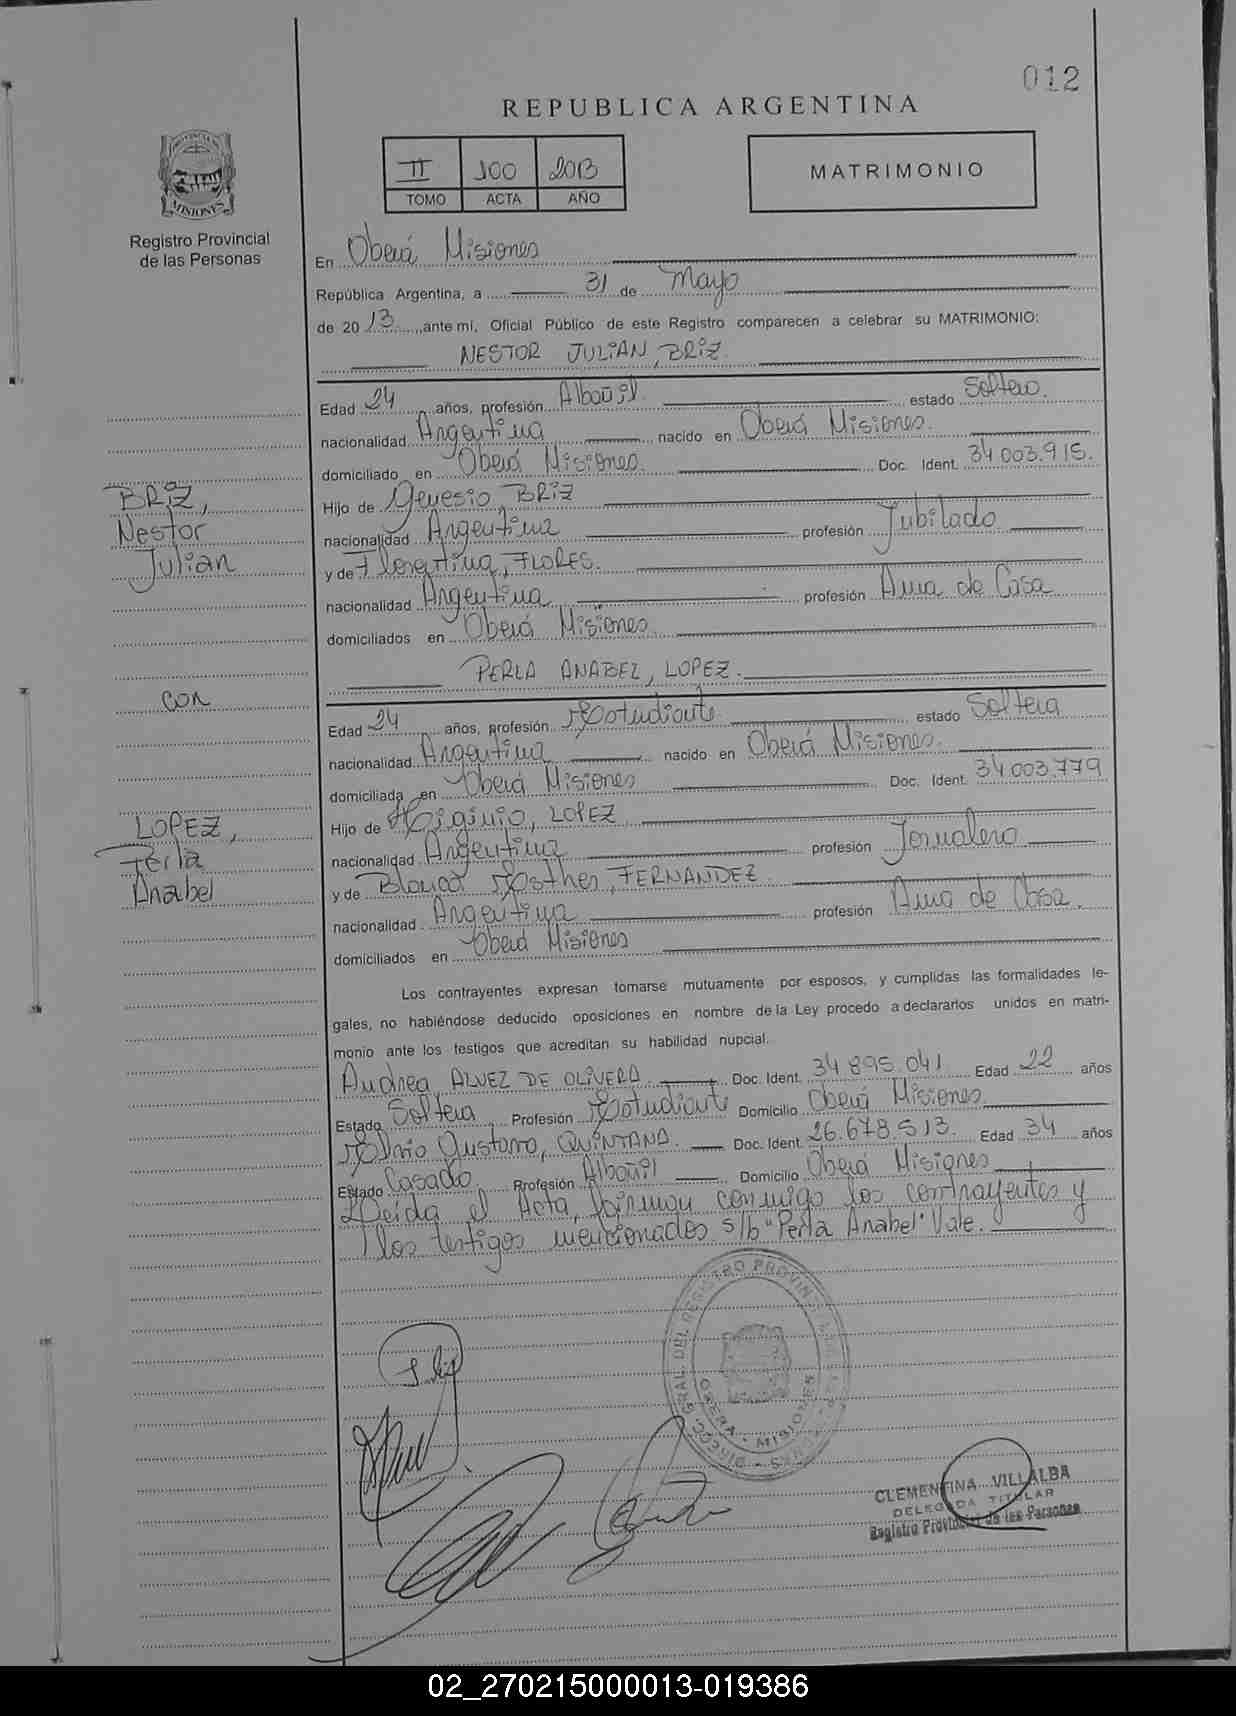 012
REPUBLICA ARGENTINA
II 100 2013
TOMO ACTA AÑO
MATRIMONIO
PROVINCIA DE
MISIONES
Registro Provincial
de las Personas
En Oberá Misiones
República Argentina, a 31 de Mayo
de 2013, ante mi, Oficial Público de este Registro comparecen a celebrar su MATRIMONIO:
NESTOR JULIAN, BRIZ.
Edad 24 años, profesión Albañil. estado Soltero.
nacionalidad Argentina nacido en Oberá Misiones.
domiciliado en Oberá Misiones. Doc. Ident. 34.003.915.
Hijo de Genesio BRIZ
nacionalidad Argentina profesión Jubilado
y de Florentina, FLORES.
nacionalidad Argentina profesión Ama de Casa
domiciliados en Oberá Misiones.
BRIZ,
Nestor
Julian
con
LOPEZ,
Perla
Anabel
PERLA ANABEL, LOPEZ.
Edad 24 años, profesión Estudiante estado Soltera
nacionalidad Argentina nacido en Oberá Misiones.
domiciliada en Oberá Misiones Doc. Ident. 34.003.779
Hijo de Higinio, LOPEZ
nacionalidad Argentina profesión Jornalero
y de Blanca Esther, FERNANDEZ
nacionalidad Argentina profesión Ama de Casa.
domiciliados en Oberá Misiones
Los contrayentes expresan tomarse mutuamente por esposos, y cumplidas las formalidades le-
gales, no habiéndose deducido oposiciones en nombre de la Ley procedo a declararlos unidos en matri-
monio ante los testigos que acreditan su habilidad nupcial.
Andrea ALVEZ DE OLIVERA. Doc. Ident. 34.895.041 Edad 22 años
Estado Soltera Profesión Estudiante Domicilio Oberá Misiones.
Elvio Gustavo, QUINTANA. Doc. Ident. 26.678.513. Edad 34 años
Estado Casado Profesión Albañil Domicilio Oberá Misiones
Leida el Acta, firman conmigo los contrayentes y
los testigos mencionados s/b "Perla Anabel" Vale.
OBERA - MISIONES
CLEMENTINA VILLALBA
DELEGADA TITULAR
Registro Provincial de las Personas
02_270215000013-019386